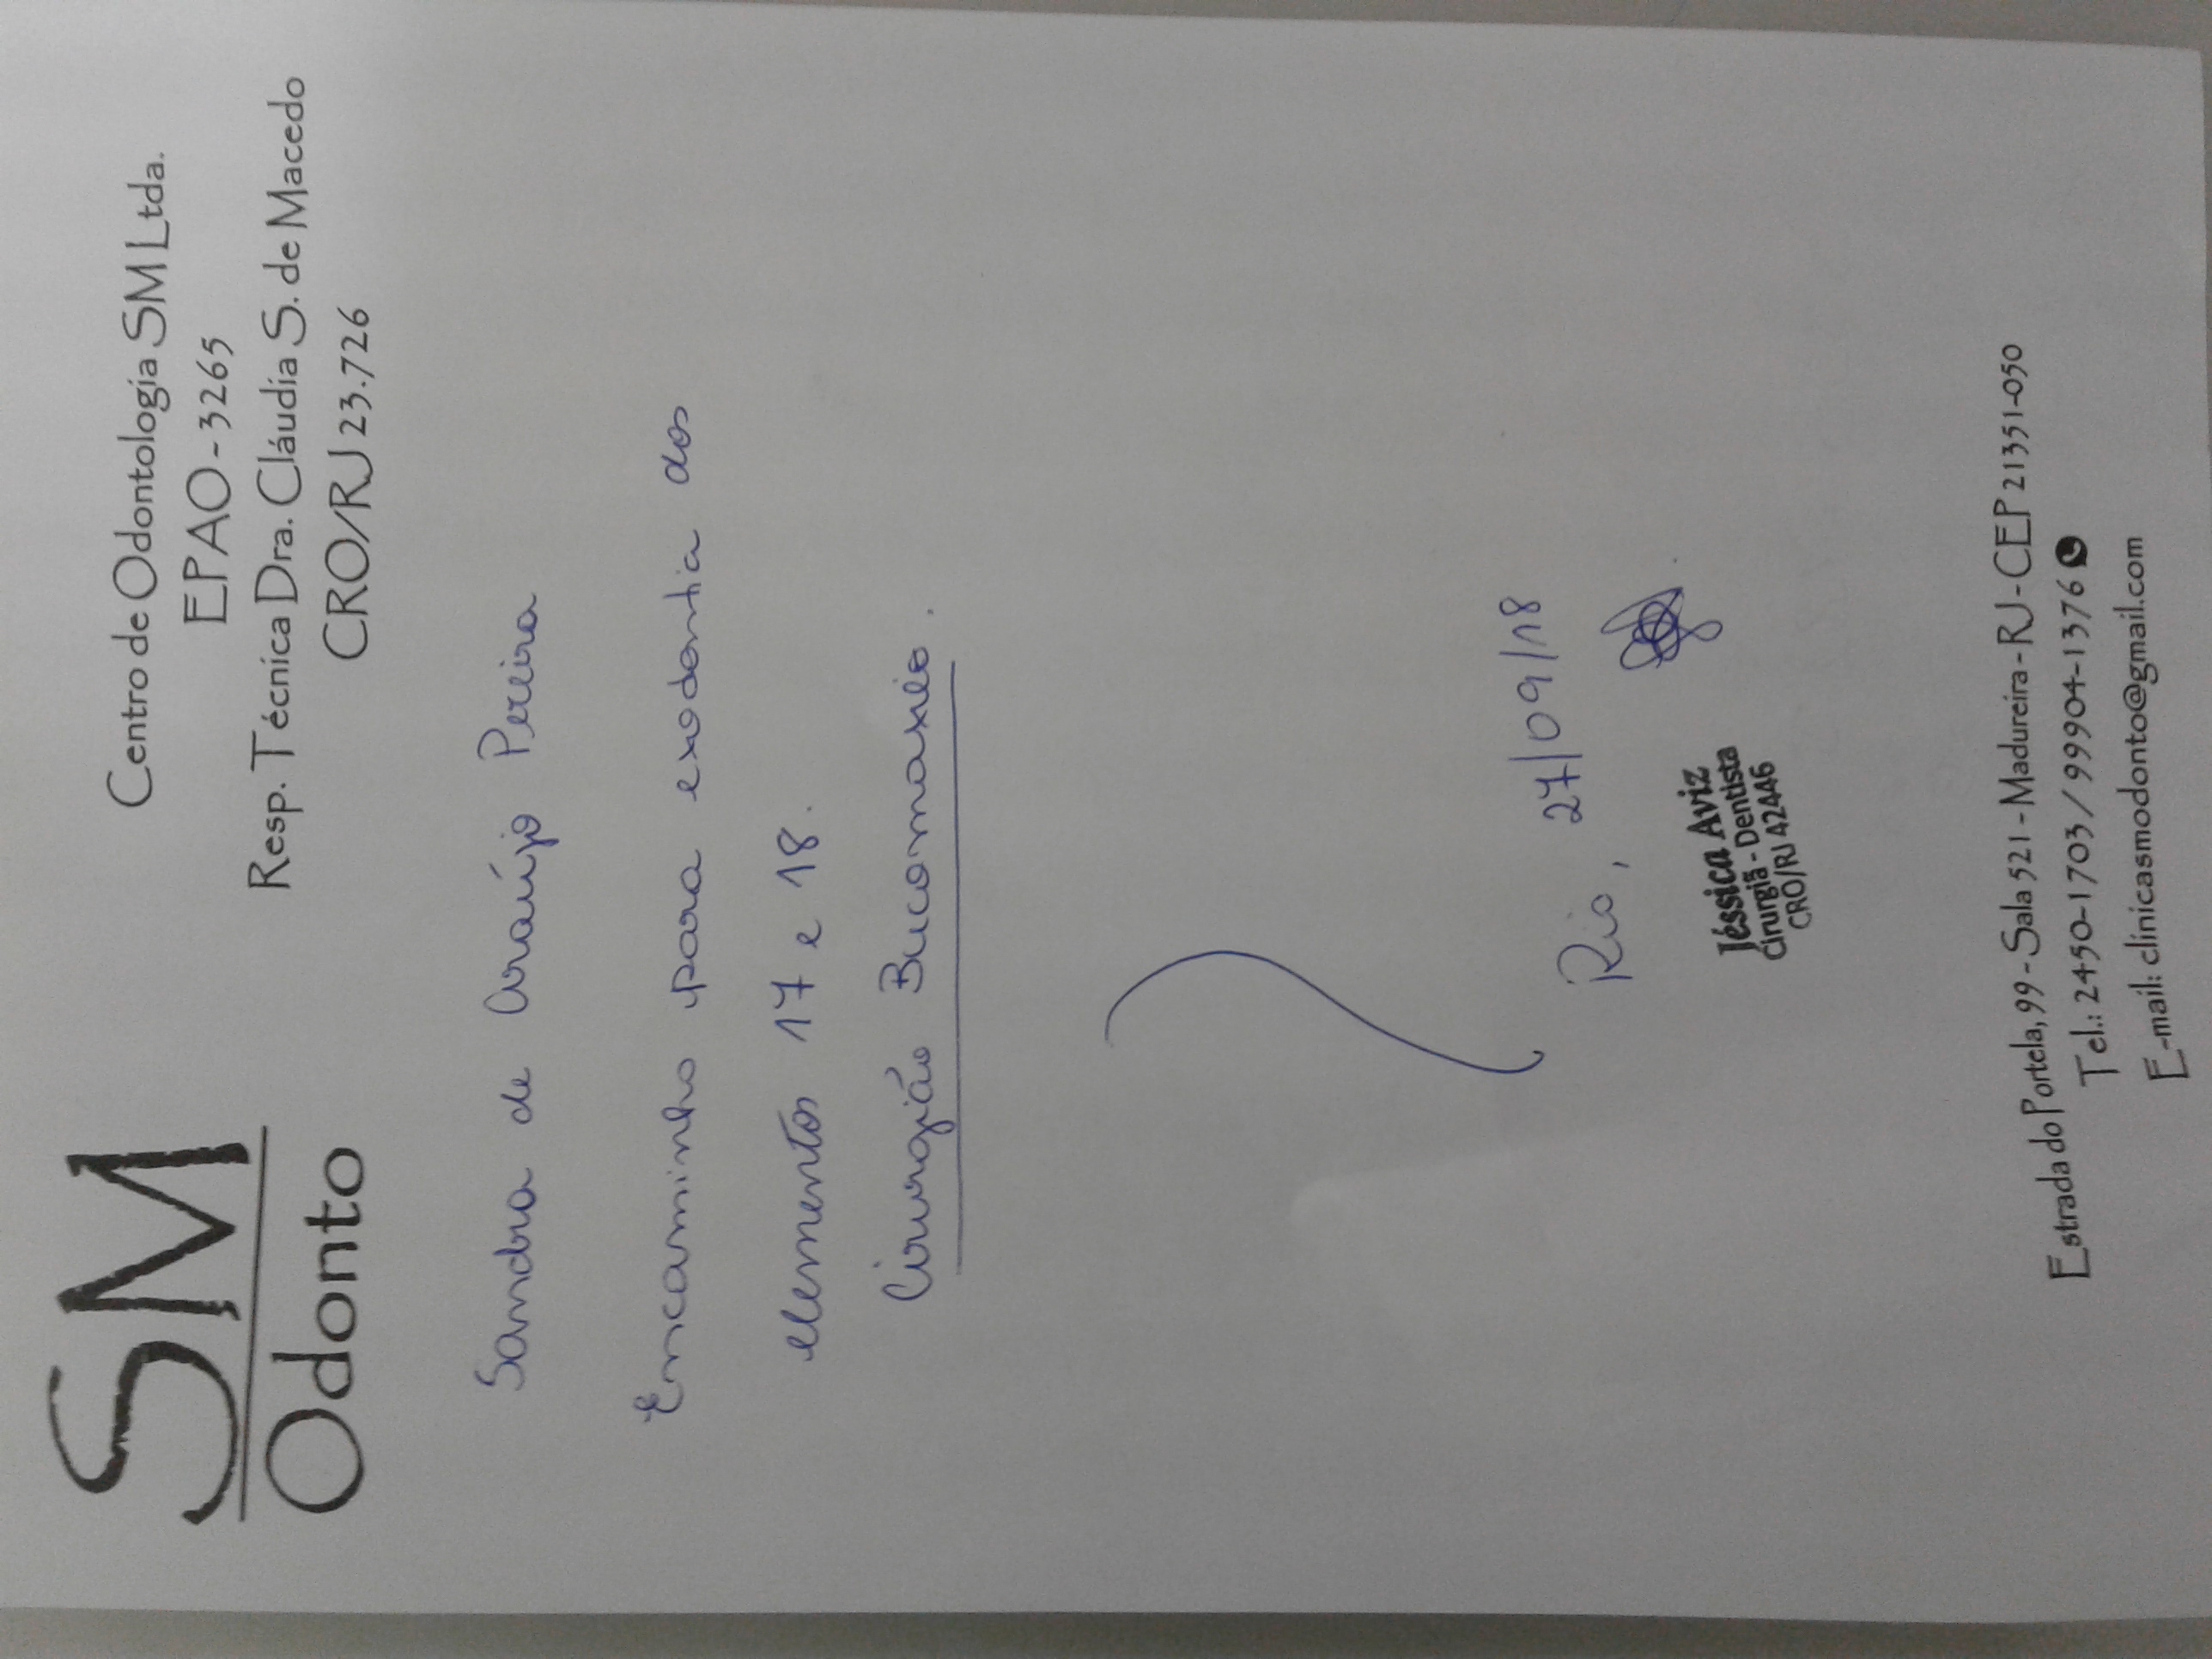 SM
Odonto
Centro de Odontologia SM Ltda.
EPAO - 3265
Resp. Técnica Dra. Cláudia S. de Macedo
CRO/RJ 23.726
Sandra de Araújo Pereira
Encaminho para exodontia dos
elementos 17 e 18.
Cirurgião Bucomaxilo.
Rio, 27/09/18
Jéssica Aviz
Cirurgiã - Dentista
CRO/RJ 42446
Estrada do Portela, 99 - Sala 521 - Madureira - RJ - CEP 21351-050
Tel.: 2450-1703 / 99904-1376
E-mail: clinicasmodonto@gmail.com